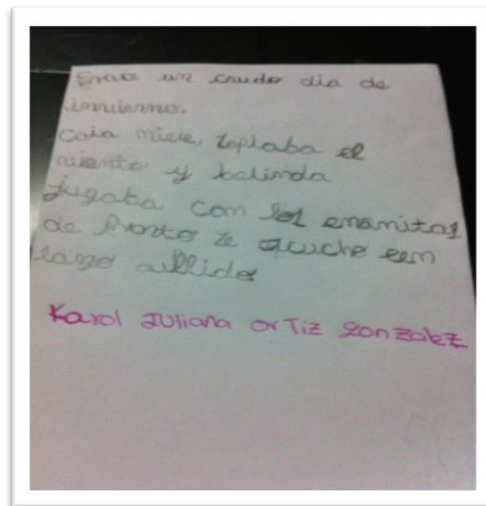 Erase un crudo dia de
invierno.
Caia nieve, zoplaba el
viento y belinda
jugaba con los enanitos
de pronto ze ecucho eem
lazgo aullido
Karol Juliana orTiz gonzalez